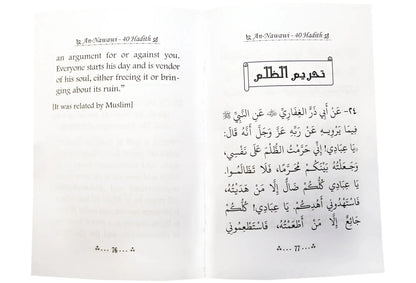 An-Nawawi - 40 Hadith
an argument for or against you.
Everyone starts his day and is vendor
of his soul, either freeing it or brin-
ging about its ruin.”
[It was related by Muslim]
76
An-Nawawi - 40 Hadith
تحريم الظلم
٢٤- عَنْ أَبِي ذَرٍّ الغِفَارِيِّ ﷺ عَنِ النَّبِيِّ ﷺ
فِيمَا يَرْوِيهِ عَنْ رَبِّهِ عَزَّ وَجَلَّ أَنَّهُ قَالَ:
يَا عِبَادِي! إِنِّي حَرَّمْتُ الظُّلْمَ عَلَى نَفْسِي،
وَجَعَلْتُهُ بَيْنَكُمْ مُحَرَّمًا، فَلَا تَظَالَمُوا.
يَا عِبَادِي! كُلُّكُمْ ضَالٌّ إِلَّا مَنْ هَدَيْتُهُ،
فَاسْتَهْدُونِي أَهْدِكُمْ. يَا عِبَادِي! كُلُّكُمْ
جَائِعٌ إِلَّا مَنْ أَطْعَمْتُهُ، فَاسْتَطْعِمُونِي
77